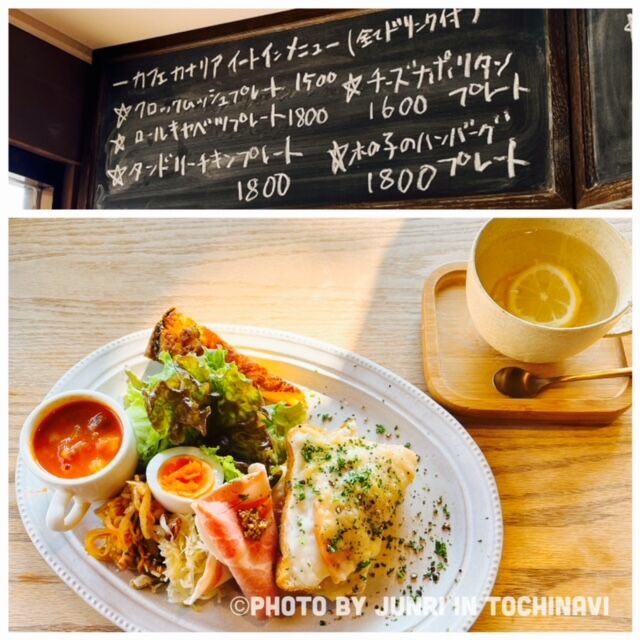 ーカフェカナリアイートインメニュー(全てドリンク付)
☆クロックムッシュプレート 1500
☆ロールキャベツプレート1800
☆タンドリーチキンプレート
1800
☆チーズナポリタン
1600 プレート
☆木の子のハンバーグ
1800プレート
©PHOTO BY JUNRI IN TOCHINAVI